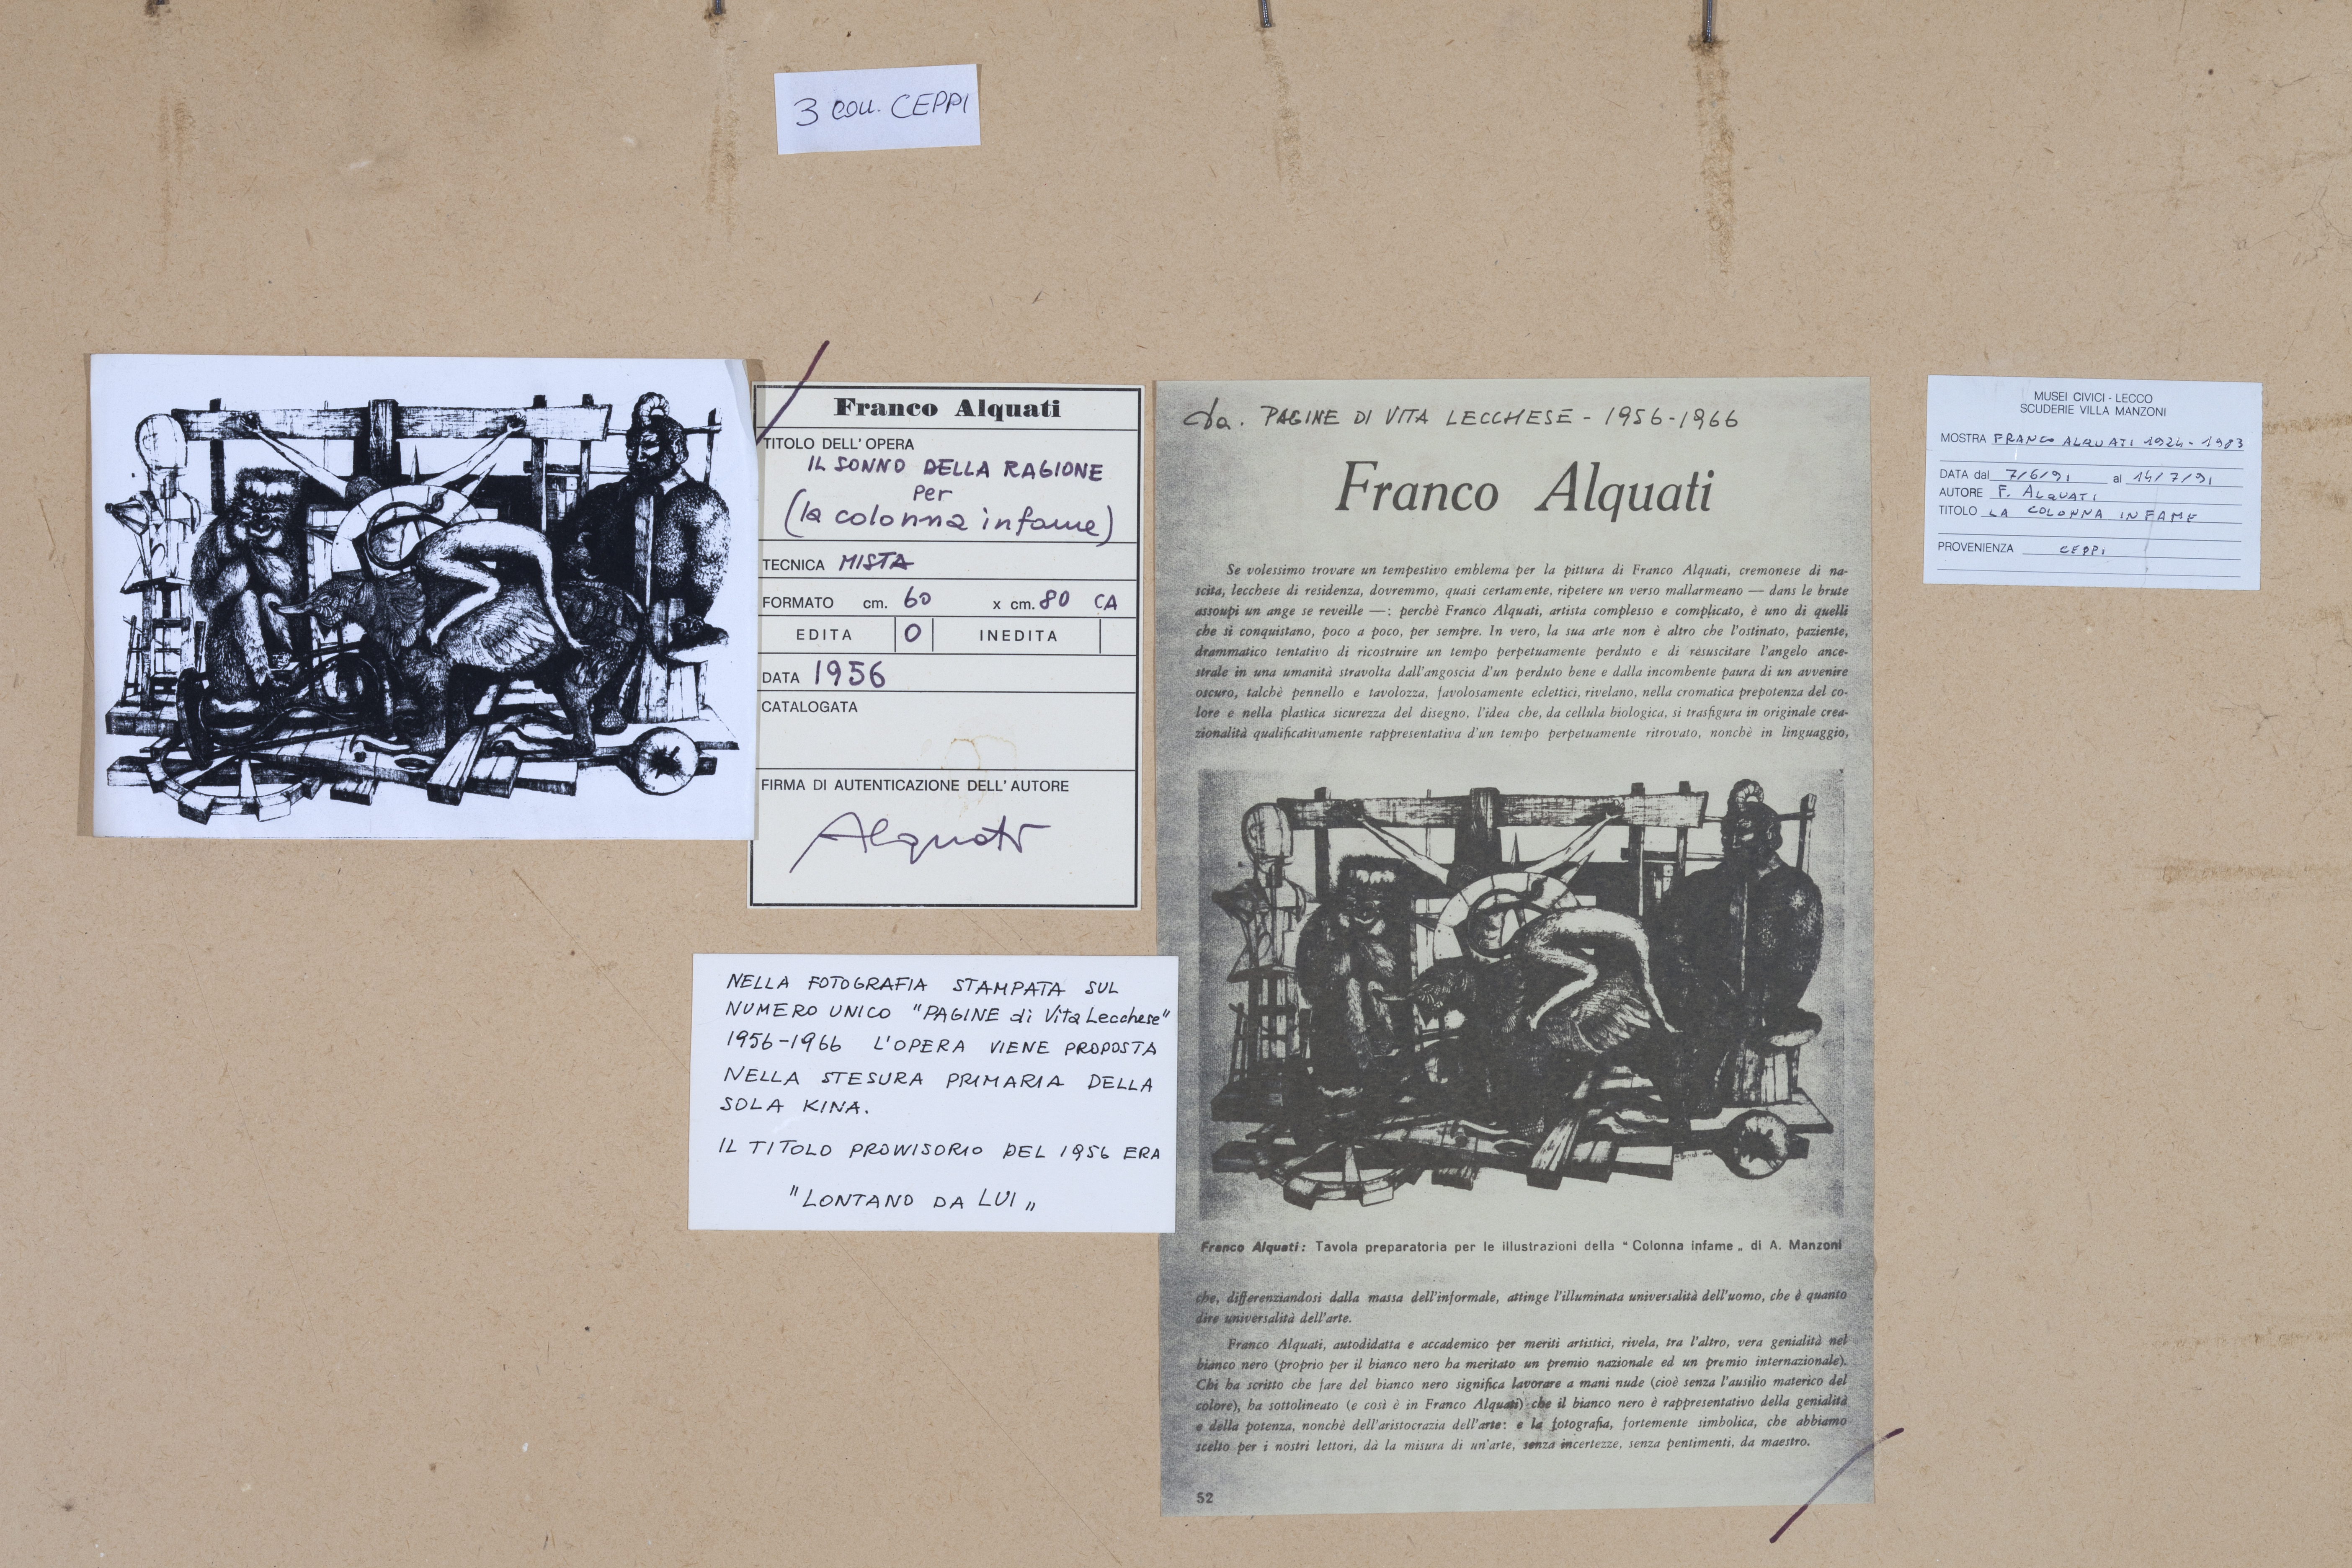 3 COLL. CEPPI
Franco Alquati
TITOLO DELL'OPERA
IL SONNO DELLA RAGIONE
per
(la colonna infame)
TECNICA MISTA
FORMATO cm. 60 x cm. 80 CA
EDITA O INEDITA
DATA 1956
CATALOGATA
FIRMA DI AUTENTICAZIONE DELL'AUTORE
Alquati
NELLA FOTOGRAFIA STAMPATA SUL
NUMERO UNICO "PAGINE di Vita Lecchese"
1956-1966 L'OPERA VIENE PROPOSTA
NELLA STESURA PRIMARIA DELLA
SOLA KINA.
IL TITOLO PROVVISORIO DEL 1956 ERA
"LONTANO DA LUI„
da. PAGINE DI VITA LECCHESE - 1956-1966
Franco Alquati
Se volessimo trovare un tempestivo emblema per la pittura di Franco Alquati, cremonese di na-
scita, lecchese di residenza, dovremmo, quasi certamente, ripetere un verso mallarmeano — dans le brute
assoupi un ange se reveille —: perchè Franco Alquati, artista complesso e complicato, è uno di quelli
che si conquistano, poco a poco, per sempre. In vero, la sua arte non è altro che l'ostinato, paziente,
drammatico tentativo di ricostruire un tempo perpetuamente perduto e di resuscitare l'angelo ance-
strale in una umanità stravolta dall'angoscia d'un perduto bene e dalla incombente paura di un avvenire
oscuro, talchè pennello e tavolozza, favolosamente eclettici, rivelano, nella cromatica prepotenza del co-
lore e nella plastica sicurezza del disegno, l'idea che, da cellula biologica, si trasfigura in originale crea-
zionalità qualificativamente rappresentativa d'un tempo perpetuamente ritrovato, nonchè in linguaggio,
Franco Alquati: Tavola preparatoria per le illustrazioni della "Colonna infame„ di A. Manzoni
che, differenziandosi dalla massa dell'informale, attinge l'illuminata universalità dell'uomo, che è quanto
dire universalità dell'arte.
Franco Alquati, autodidatta e accademico per meriti artistici, rivela, tra l'altro, vera genialità nel
bianco nero (proprio per il bianco nero ha meritato un premio nazionale ed un premio internazionale).
Chi ha scritto che fare del bianco nero significa lavorare a mani nude (cioè senza l'ausilio materico del
colore), ha sottolineato (e così è in Franco Alquati) che il bianco nero è rappresentativo della genialità
e della potenza, nonchè dell'aristocrazia dell'arte: e la fotografia, fortemente simbolica, che abbiamo
scelto per i nostri lettori, dà la misura di un'arte, senza incertezze, senza pentimenti, da maestro.
52
MUSEI CIVICI - LECCO
SCUDERIE VILLA MANZONI
MOSTRA FRANCO ALQUATI 1924-1983
DATA dal 7/6/91 al 14/7/91
AUTORE F. ALQUATI
TITOLO LA COLONNA INFAME
PROVENIENZA CEPPI